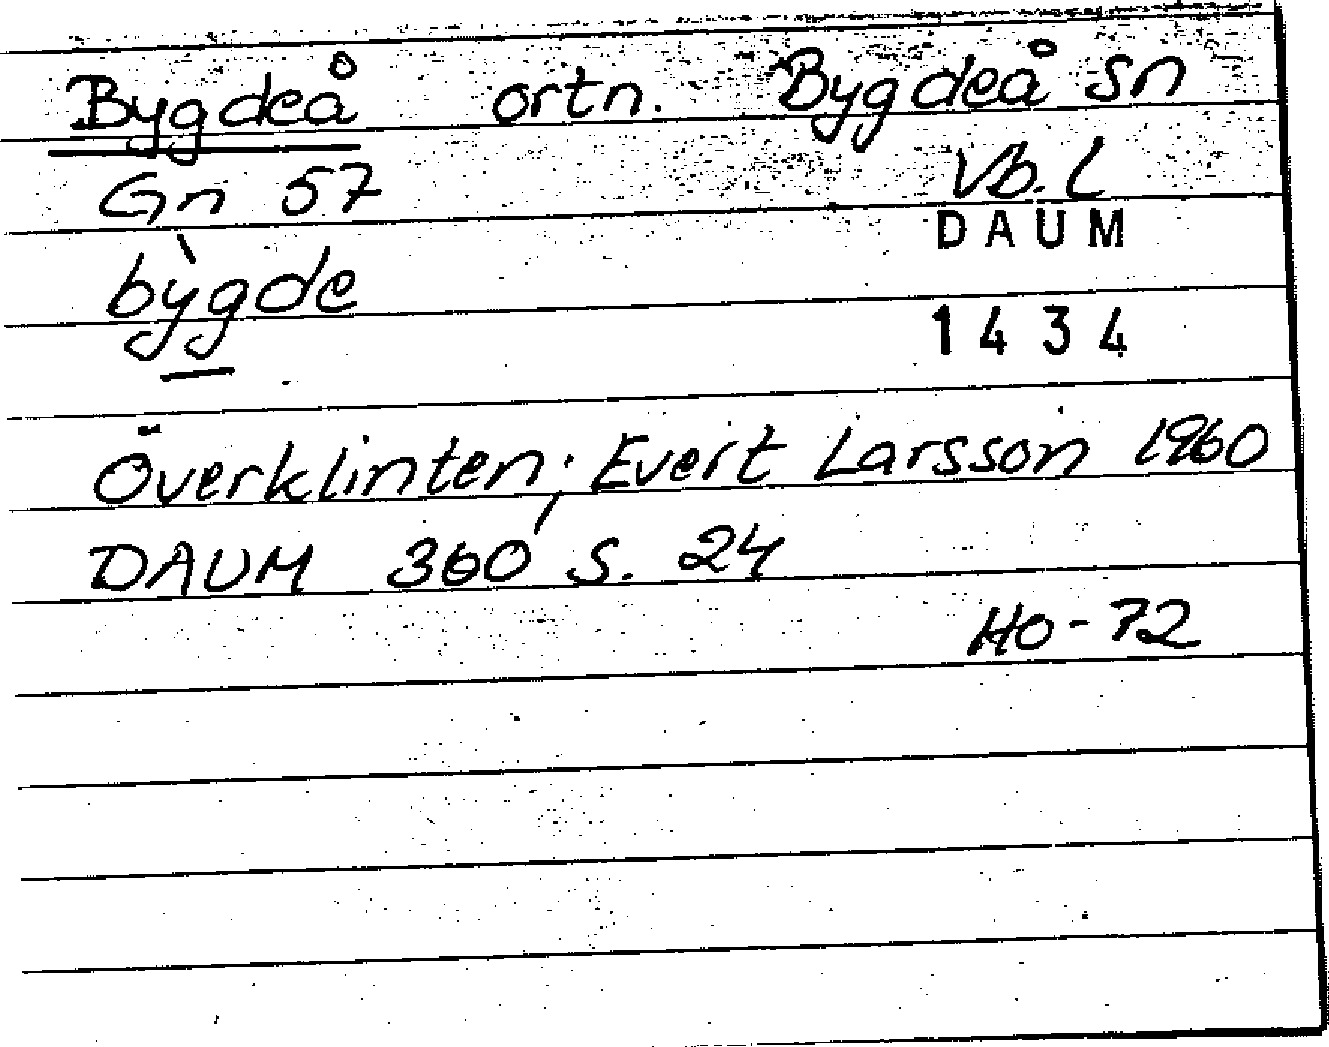 Bygdeå ortn. Bygdeå sn
Gn 57 Vb. L
DAUM
bỳgde
1434
Överklinten; Evert Larsson 1960
DAUM 360 s. 24
HO-72